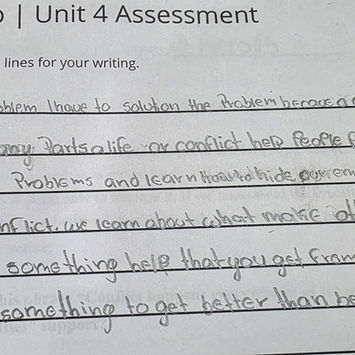 | Unit 4 Assessment
lines for your writing.
oblem I have to solution the Problem because
Parts a life or conflict help People f
Problems and learn how to hide
nflict. we learn about what make ot
something help that you get from
something to get better than be